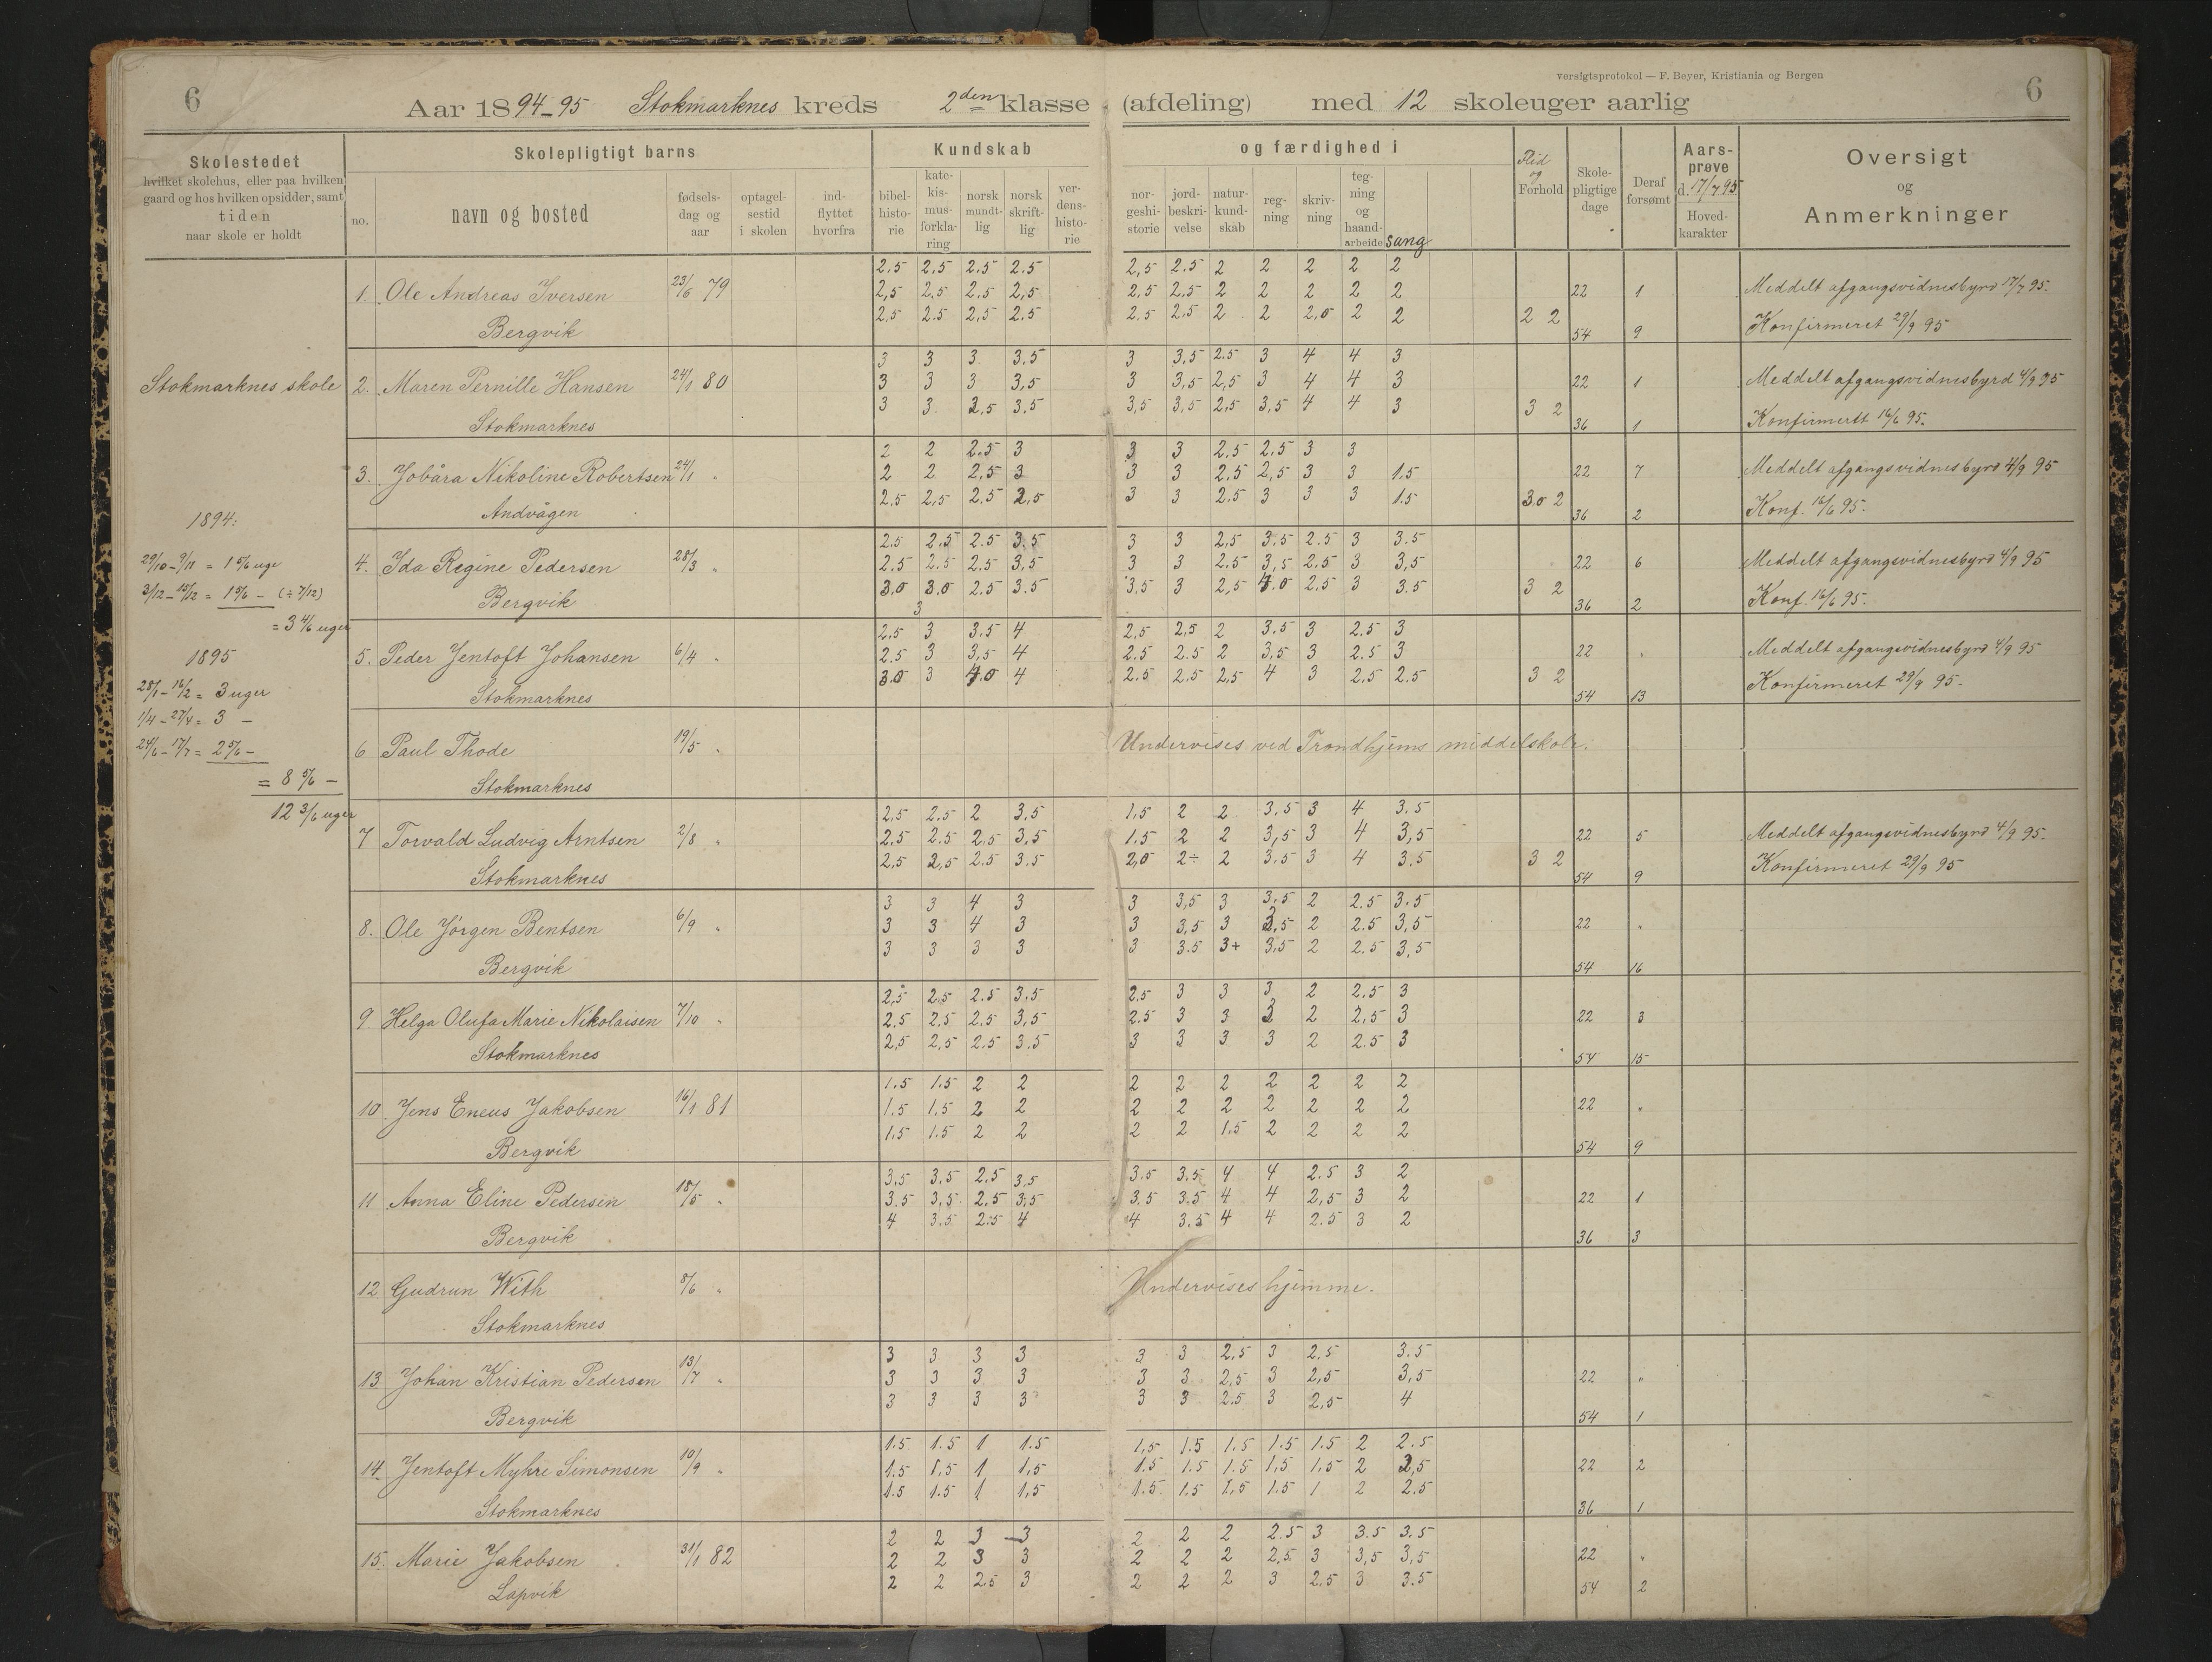 versigtsprotokol — F. Beyer, Kristiania og Bergen
6 Aar 1894-95 Stokmarknes kreds 2den klasse (afdeling) med 12 skoleuger aarlig 6
Skolestedet
hvilket skolehus, eller paa hvilken
gaard og hos hvilken opsidder, samt
tiden
naar skole er holdt
Skolepligtigt barns
no.
navn og bosted
fødsels-
dag og
aar
optagel-
sestid
i skolen
ind-
flyttet
hvorfra
Kundskab
bibel-
histo-
rie
kate-
kis-
mus-
forkla-
ring
norsk
mundt-
lig
norsk
skrift-
lig
ver-
dens-
histo-
rie
og færdighed i
nor-
geshi-
storie
jord-
beskri-
velse
natur-
kund-
skab
reg-
ning
skriv-
ning
teg-
ning
og
haand-
arbeide
sang
Flid
og
Forhold
Skole-
pligtige
dage
Deraf
forsømt
Aars-
prøve
d. 17/7 95
Hoved-
karakter
Oversigt
og
Anmerkninger
Stokmarknes skole
1894:
29/10-9/11 = 1 5/6 uge
3/12-15/12 = 1 5/6 - (÷ 7/12)
= 3 4/6 uger
1895
28/1-16/2 = 3 uger
1/4-27/4 = 3 -
24/6-17/7 = 2 5/6 -
= 8 5/6 -
12 3/6 uger
2.5 2.5 2.5 2.5 2,5 2.5 2 2 2 2 2
1. Ole Andreas Iversen 23/6 79 2,5 2,5 2,5 2,5 2,5 2,5 2 2 2 2 2 22 1 Meddelt afgangsvidnesbyrd 17/7 95.
Bergvik 2.5 2.5 2,5 2.5 2.5 2.5 2 2 2,0 2 2 2 2 54 9 Konfirmeret 29/9 95
3 3 3 3,5 3 3,5 2.5 3 4 4 3
2. Maren Pernille Hansen 24/1 80 3 3 3 3,5 3 3,5 2,5 3 4 4 3 22 1 Meddelt afgangsvidnesbyrd 4/9 95
Stokmarknes 3 3. 2,5 3.5 3,5 3,5 2,5 3,5 4 4 3 3 2 36 1 Konfirmert 16/6 95.
2 2 2.5 3 3 3 2.5 2,5 3 3
3. Jobåra Nikoline Robertsen 24/1 " 2 2 2,5 3 3 3 2.5 2,5 3 3 1.5 22 7 Meddelt afgangsvidnesbyrd 4/9 95
Andvågen 2.5 2,5 2.5 2,5 3 3 2.5 3 3 3 1.5 3.0 2 36 2 Konf. 16/6 95.
2.5 2.5 2.5 3.5 3 3 2,5 3.5 2.5 3 3.5
4. Ida Regine Pedersen 28/3 " 2.5 2.5 2.5 3,5 3 3 2.5 3,5 2,5 3 3,5 22 6 Meddelt afgangsvidnesbyrd 4/9 95
Bergvik 3.0 3.0 2.5 3.5 3.5 3 2,5 4.0 2.5 3 3.5 3 2 36 2 Konf. 16/6 95.
3
2,5 3 3.5 4 2,5 2,5 2 3.5 3 2.5 3
5. Peder Jentoft Johansen 6/4 " 2.5 3 3,5 4 2.5 2.5 2 3,5 3 2.5 3 22 " Meddelt afgangsvidnesbyrd 4/9 95
Stokmarknes 3.0 3 4.0 4 2.5 2.5 2,5 4 3 2,5 2.5 3 2 54 13 Konfirmeret 29/9 95.
6 Paul Thode 19/5 " Undervises ved Trondhjems middelskole.
Stokmarknes
2,5 2.5 2 3,5 1,5 2 2 3,5 3 4 3.5
7 Torvald Ludvig Arntsen 2/8 " 2.5 2.5 2,5 3,5 1.5 2 2 3,5 3 4 3,5 22 5 Meddelt afgangsvidnesbyrd 4/9 95.
Stokmarknes 2,5 2,5 2.5 3.5 2,0 2÷ 2 3.5 3 4 3.5 3 2 54 9 Konfirmeret 29/9 95
3 3 4 3 3 3,5 3 3.5 2 2.5 3.5
8. Ole Jørgen Bentsen 6/9 " 3 3 4 3 3 3,5 3 3,5 2 2.5 3,5 22 "
Bergvik 3 3 3 3 3 3.5 3+ 3,5 2 2.5 3,5 54 16
2,5 2.5 2.5 3.5 2.5 3 3 3 2 2.5 3
9. Helga Olufa Marie Nikolaisen 7/10 " 2.5 2.5 2,5 3,5 2.5 3 3 3 2 2,5 3 22 3
Stokmarknes 2,5 2,5 2.5 3.5 3 3 3 3 2 2.5 3 54 15
1.5 1.5 2 2 2 2 2 2 2 2 2
10 Jens Eneus Jakobsen 16/1 81 1.5 1.5 2 2 2 2 2 2 2 2 2 22 "
Bergvik 1.5 1.5 2 2 2 2 1.5 2 2 2 2 54 9
3,5 3,5 2.5 3,5 3.5 3.5 4 4 2.5 3 2
11 Anna Eline Pedersen 18/5 " 3.5 3,5 2.5 3,5 3.5 3.5 4 4 2,5 3 2 22 1
Bergvik 4 3.5 2.5 4 4 3.5 4 4 2.5 3 2 36 3
12 Gudrun With 8/6 " Undervises hjemme.
Stokmarknes
3 3 3 3 3 3 2,5 3 2,5 3.5
13 Johan Kristian Pedersen 13/7 " 3 3 3 3 3 3 2,5 3 2,5 3,5 22 "
Bergvik 3 3 3 3 3 3 2.5 3 2,5 4 54 1
1.5 1.5 1 1.5 1,5 1.5 1.5 1.5 1.5 2 2.5
14. Jentoft Myhre Simonsen 10/9 " 1.5 1,5 1 1,5 1.5 1.5 1.5 1,5 1,5 2 2,5 22 2
Stokmarknes 1.5 1.5 1 1,5 1.5 1.5 1,5 1.5 1 2 2.5 36 1
2 2 3 3 2 2 2 2.5 3 3.5 3.5
15. Marie Jakobsen 31/1 82 2 2 3 3 2 2 2 2,5 3 3,5 3,5 22 "
Lapvik 2 2 2.5 3 2 2 2 3 2.5 3 3.5 54 2